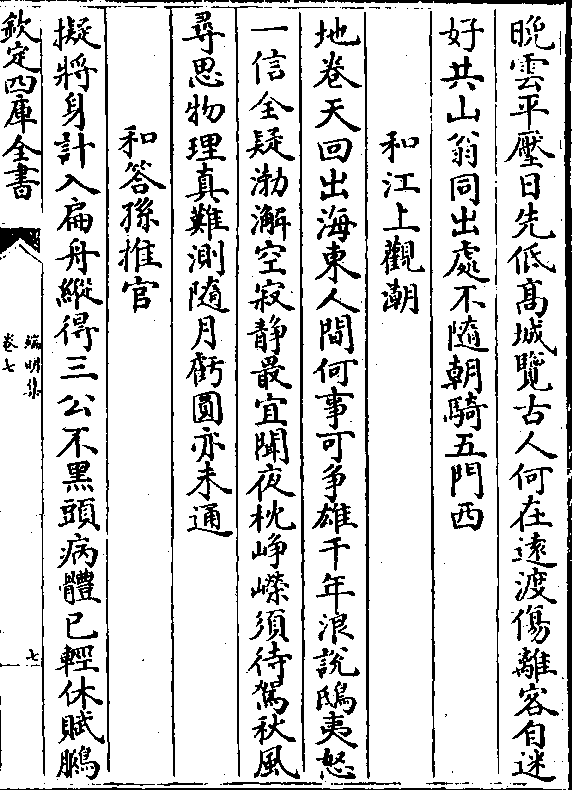 晩雲平壓日先低高城覽古人何在逺渡傷離客自迷
好共山翁同出處不隨朝騎五門西
和江上觀潮
地卷天回出海東人間何事可争雄千年浪說鴟夷怒
一信全疑渤澥空寂静最宜聞夜枕崢嶸須待駕秋風
尋思物理真難測隨月虧圓亦未通
和答孫推官
擬將身計入扁舟縱得三公不黑頭病體已輕休賦鵩
欽定四庫全書
端明集
卷七
七